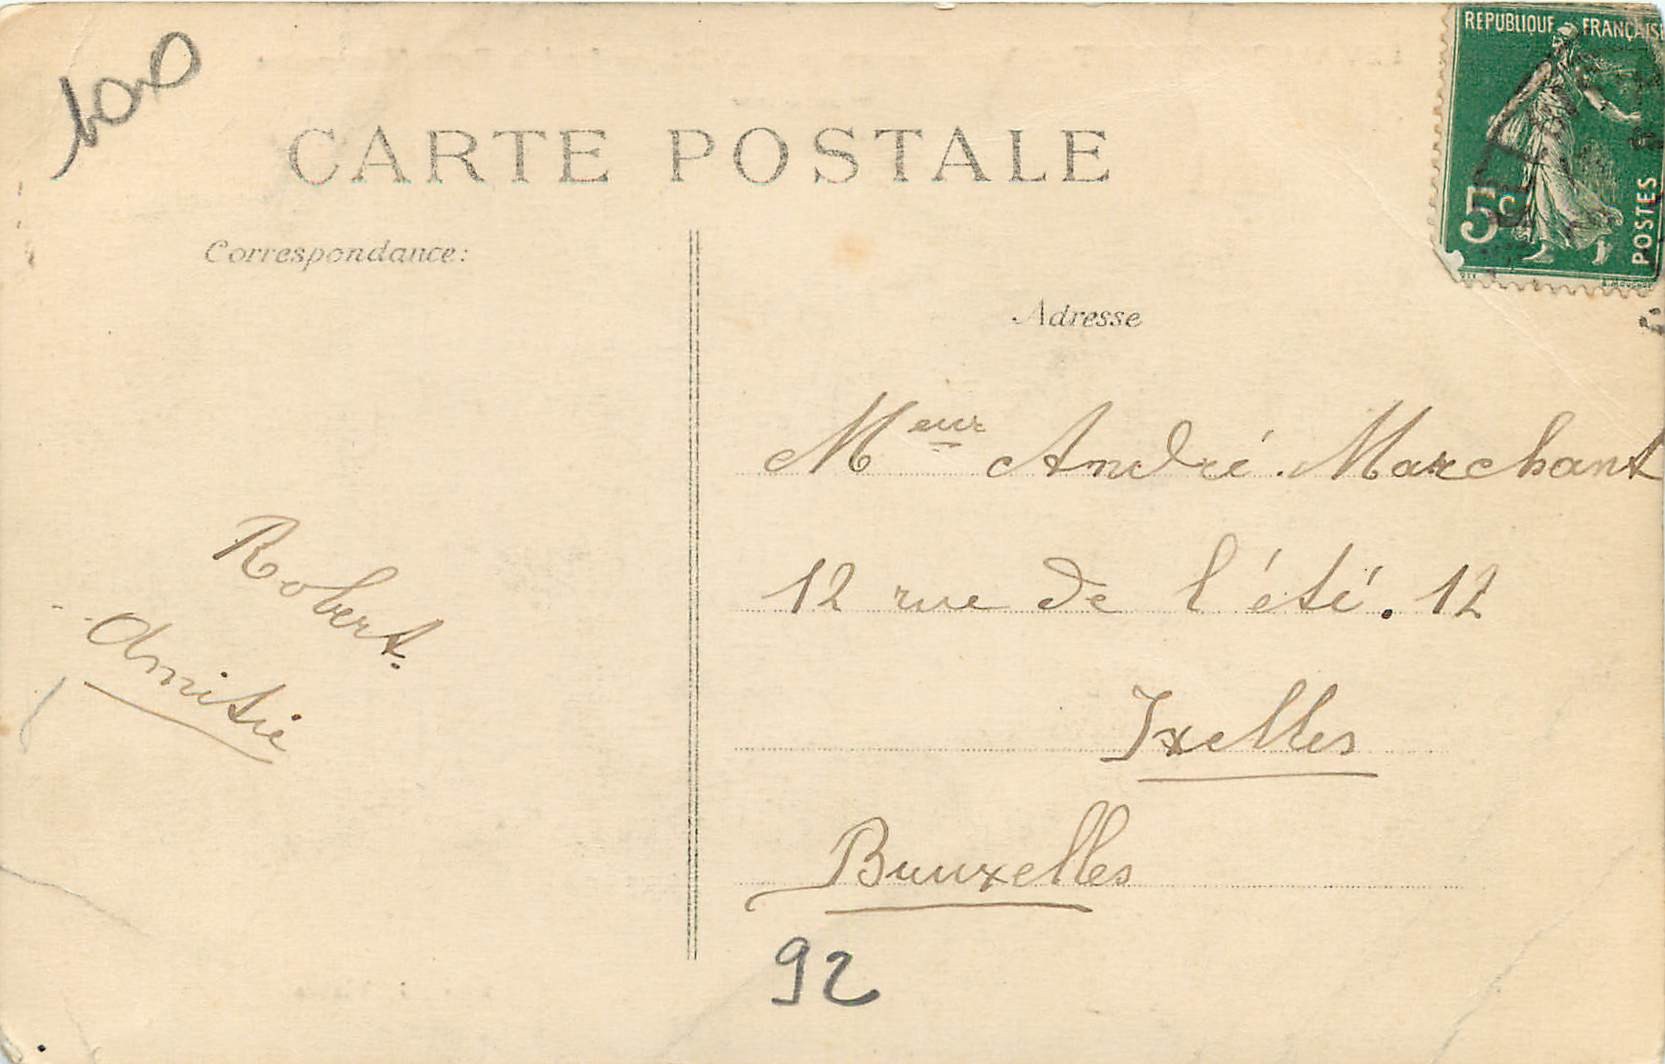 100
REPUBLIQUE FRANÇAISE
5c
POSTES
CARTE POSTALE
Correspondance:
Adresse
Robert.
Amitie
Meur André. Marchant
12 rue de l'été. 12
Ixelles
Bruxelles
92